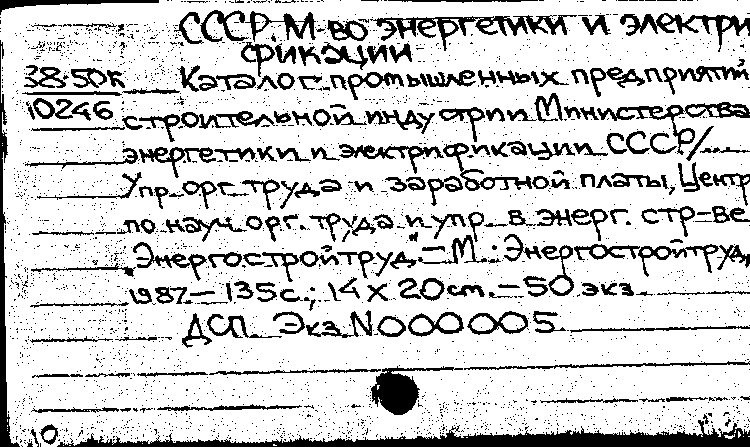 СССР. М-во энергетики и электри
фикации
38.50к Каталог промышленных предприятий
10246 строительной индустрии Министерства
энергетики и электрификации СССР/...
Упр. орг. труда и заработной платы, Центр
по науч. орг. труда и упр. в энерг. стр-ве
"Энергостройтруд". – М. : Энергостройтруд,
1987. – 135с.; 14 х 20 см. – 50 экз.
ДСП. Экз. N000005
10